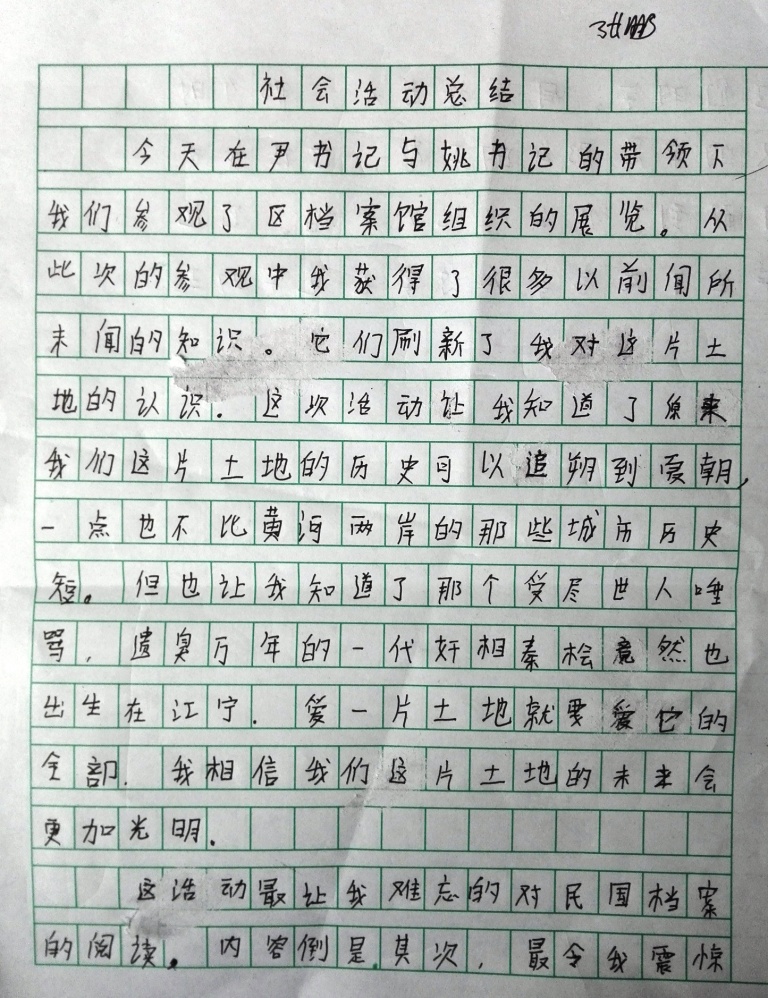 张鹏
社会活动总结
今天在尹书记与姚书记的带领下
我们参观了区档案馆组织的展览。从
此次的参观中我获得了很多以前闻所
未闻的知识。它们刷新了我对这片土
地的认识.这次活动让我知道了原来
我们这片土地的历史可以追朔到夏朝,
一点也不比黄河两岸的那些城市历史
短。但也让我知道了那个受尽世人唾
骂,遗臭万年的一代奸相秦桧竟然也
出生在江宁.爱一片土地就要爱它的
全部.我相信我们这片土地的未来会
更加光明.
这活动最让我难忘的对民国档案
的阅读。内容倒是其次,最令我震惊